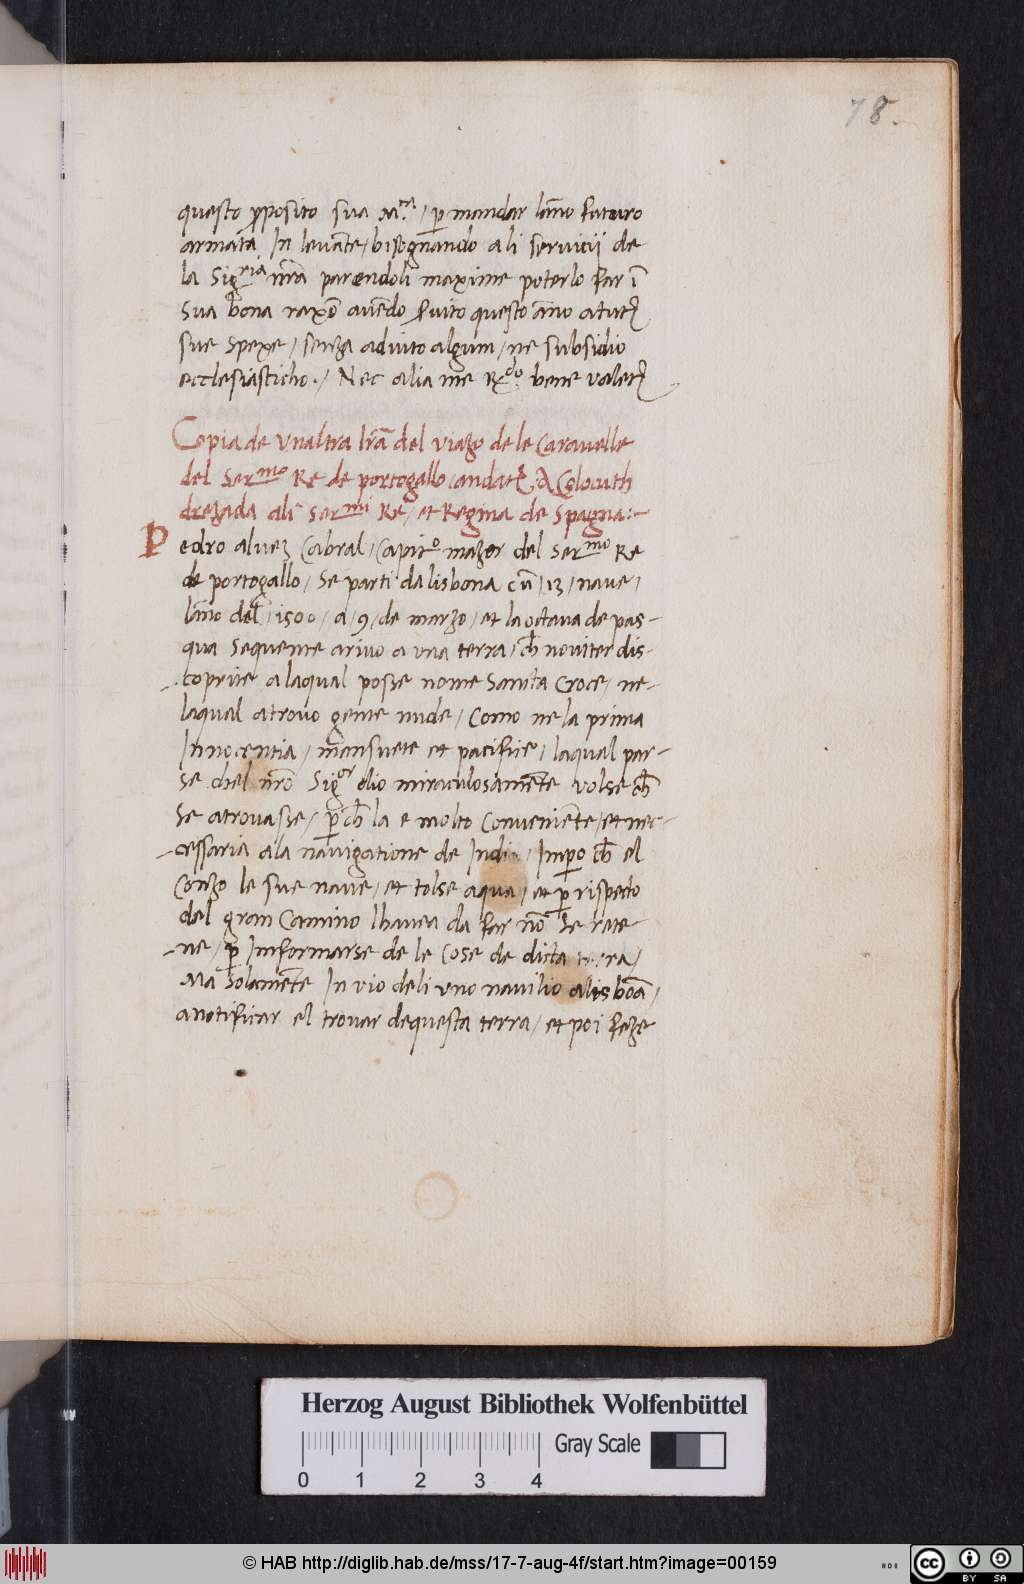 78.
questo ꝓposito sua M.ta / ꝑ mandar lãno futuro
armata In levãte / bisognando a li servicij de
la Sigria nr̃a parendoli maxime poterlo far ĩ
sua bona raxõ avẽdo
questo ãno a tute
sue spexe / senza adiuto algum / ne subsidio
ecclesiasticho./ Nec alia me Rxdo. bene valete
Copia de vnaltra lr̃a del viazo de le Caravelle
del Sermo Re de portogallo andate A Colocuth
drezada ali Sermi Re / et Regina de Spagna:-
Pedro alvez Cabral / Capito mazor del Sermo Re
de portogallo / Se parti da lisbona cũ / 13 / nave /
lãno del / 1500 / a / 9 / de marzo / et la octava de pas-
qua Sequente arivo a vna terra / ch̃ noviter dis-
coprite a laqual posse nome Santa Croce / ne-
laqual atrovo gente nude / Como ne la prima
Innocentia / mansuete et pacifice / laqual par-
se chel nr̃o Sigor dio miraculosamẽte volse ch̃
Se atrovasse / ꝑ ch̃ la e molto Conveniẽte / et nec-
cessaria a la navigatione de India / Imꝑo ch̃ el
Conzo le sue nave / et tolse aqua / et ꝑ rispecto
del gran Camino lhavea da far nõ Se rete-
ne / ꝑ Imformarse de le Cose de dicta terra /
Ma Solamẽte In vio deli vno navilio a lisbõa /
a notificar el trovar de questa terra / et poi feze
Herzog August Bibliothek Wolfenbüttel
0 1 2 3 4 Gray Scale
© HAB http://diglib.hab.de/mss/17-7-aug-4f/start.htm?image=00159
cc BY SA